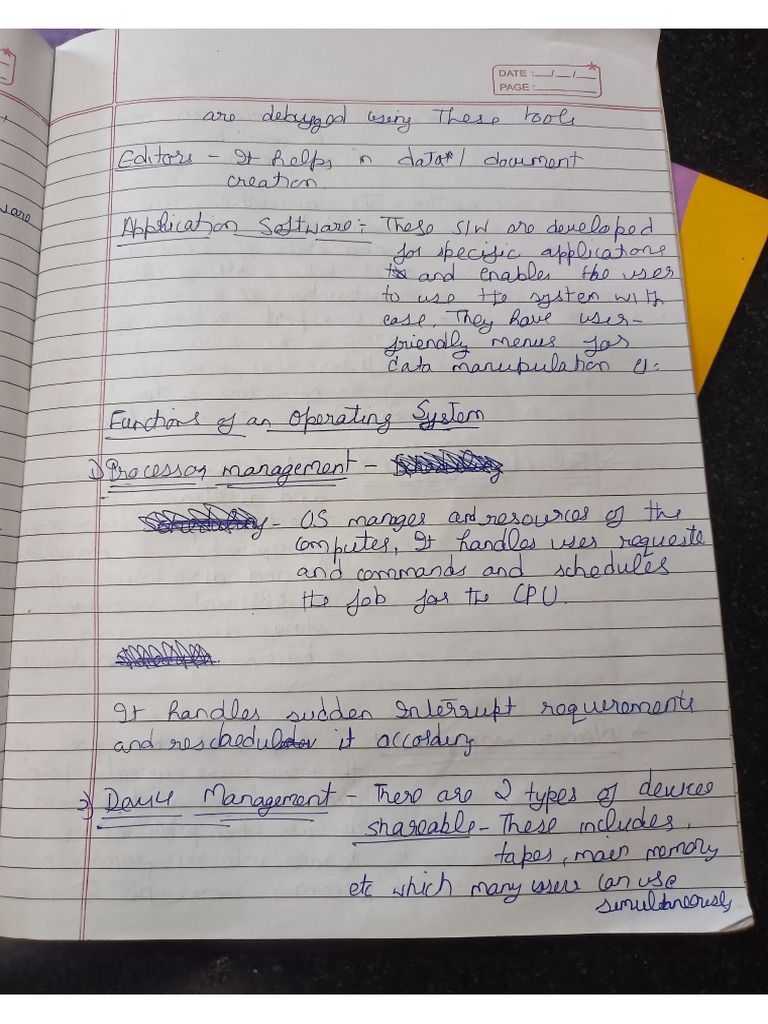 DATE : __/__/__
PAGE : ________
are debugged using These tools
Editors - It helps in data / document
creation.
Application Software :- These S/W are developed
for specific applications
and enables the user
to use the system with
ease. They have user-
friendly menus for
data manupulation
Functions of an Operating System
1) Processor management -
- OS manges and resources of the
computer, It handles user requests
and commands and schedules
the job for the CPU.
It handles sudden Interrupt requirements
and reschedul it according
2) Device Management - There are 2 types of devices
shareable - These includes,
tapes, main memory
etc which many users can use
simultaneously
ware